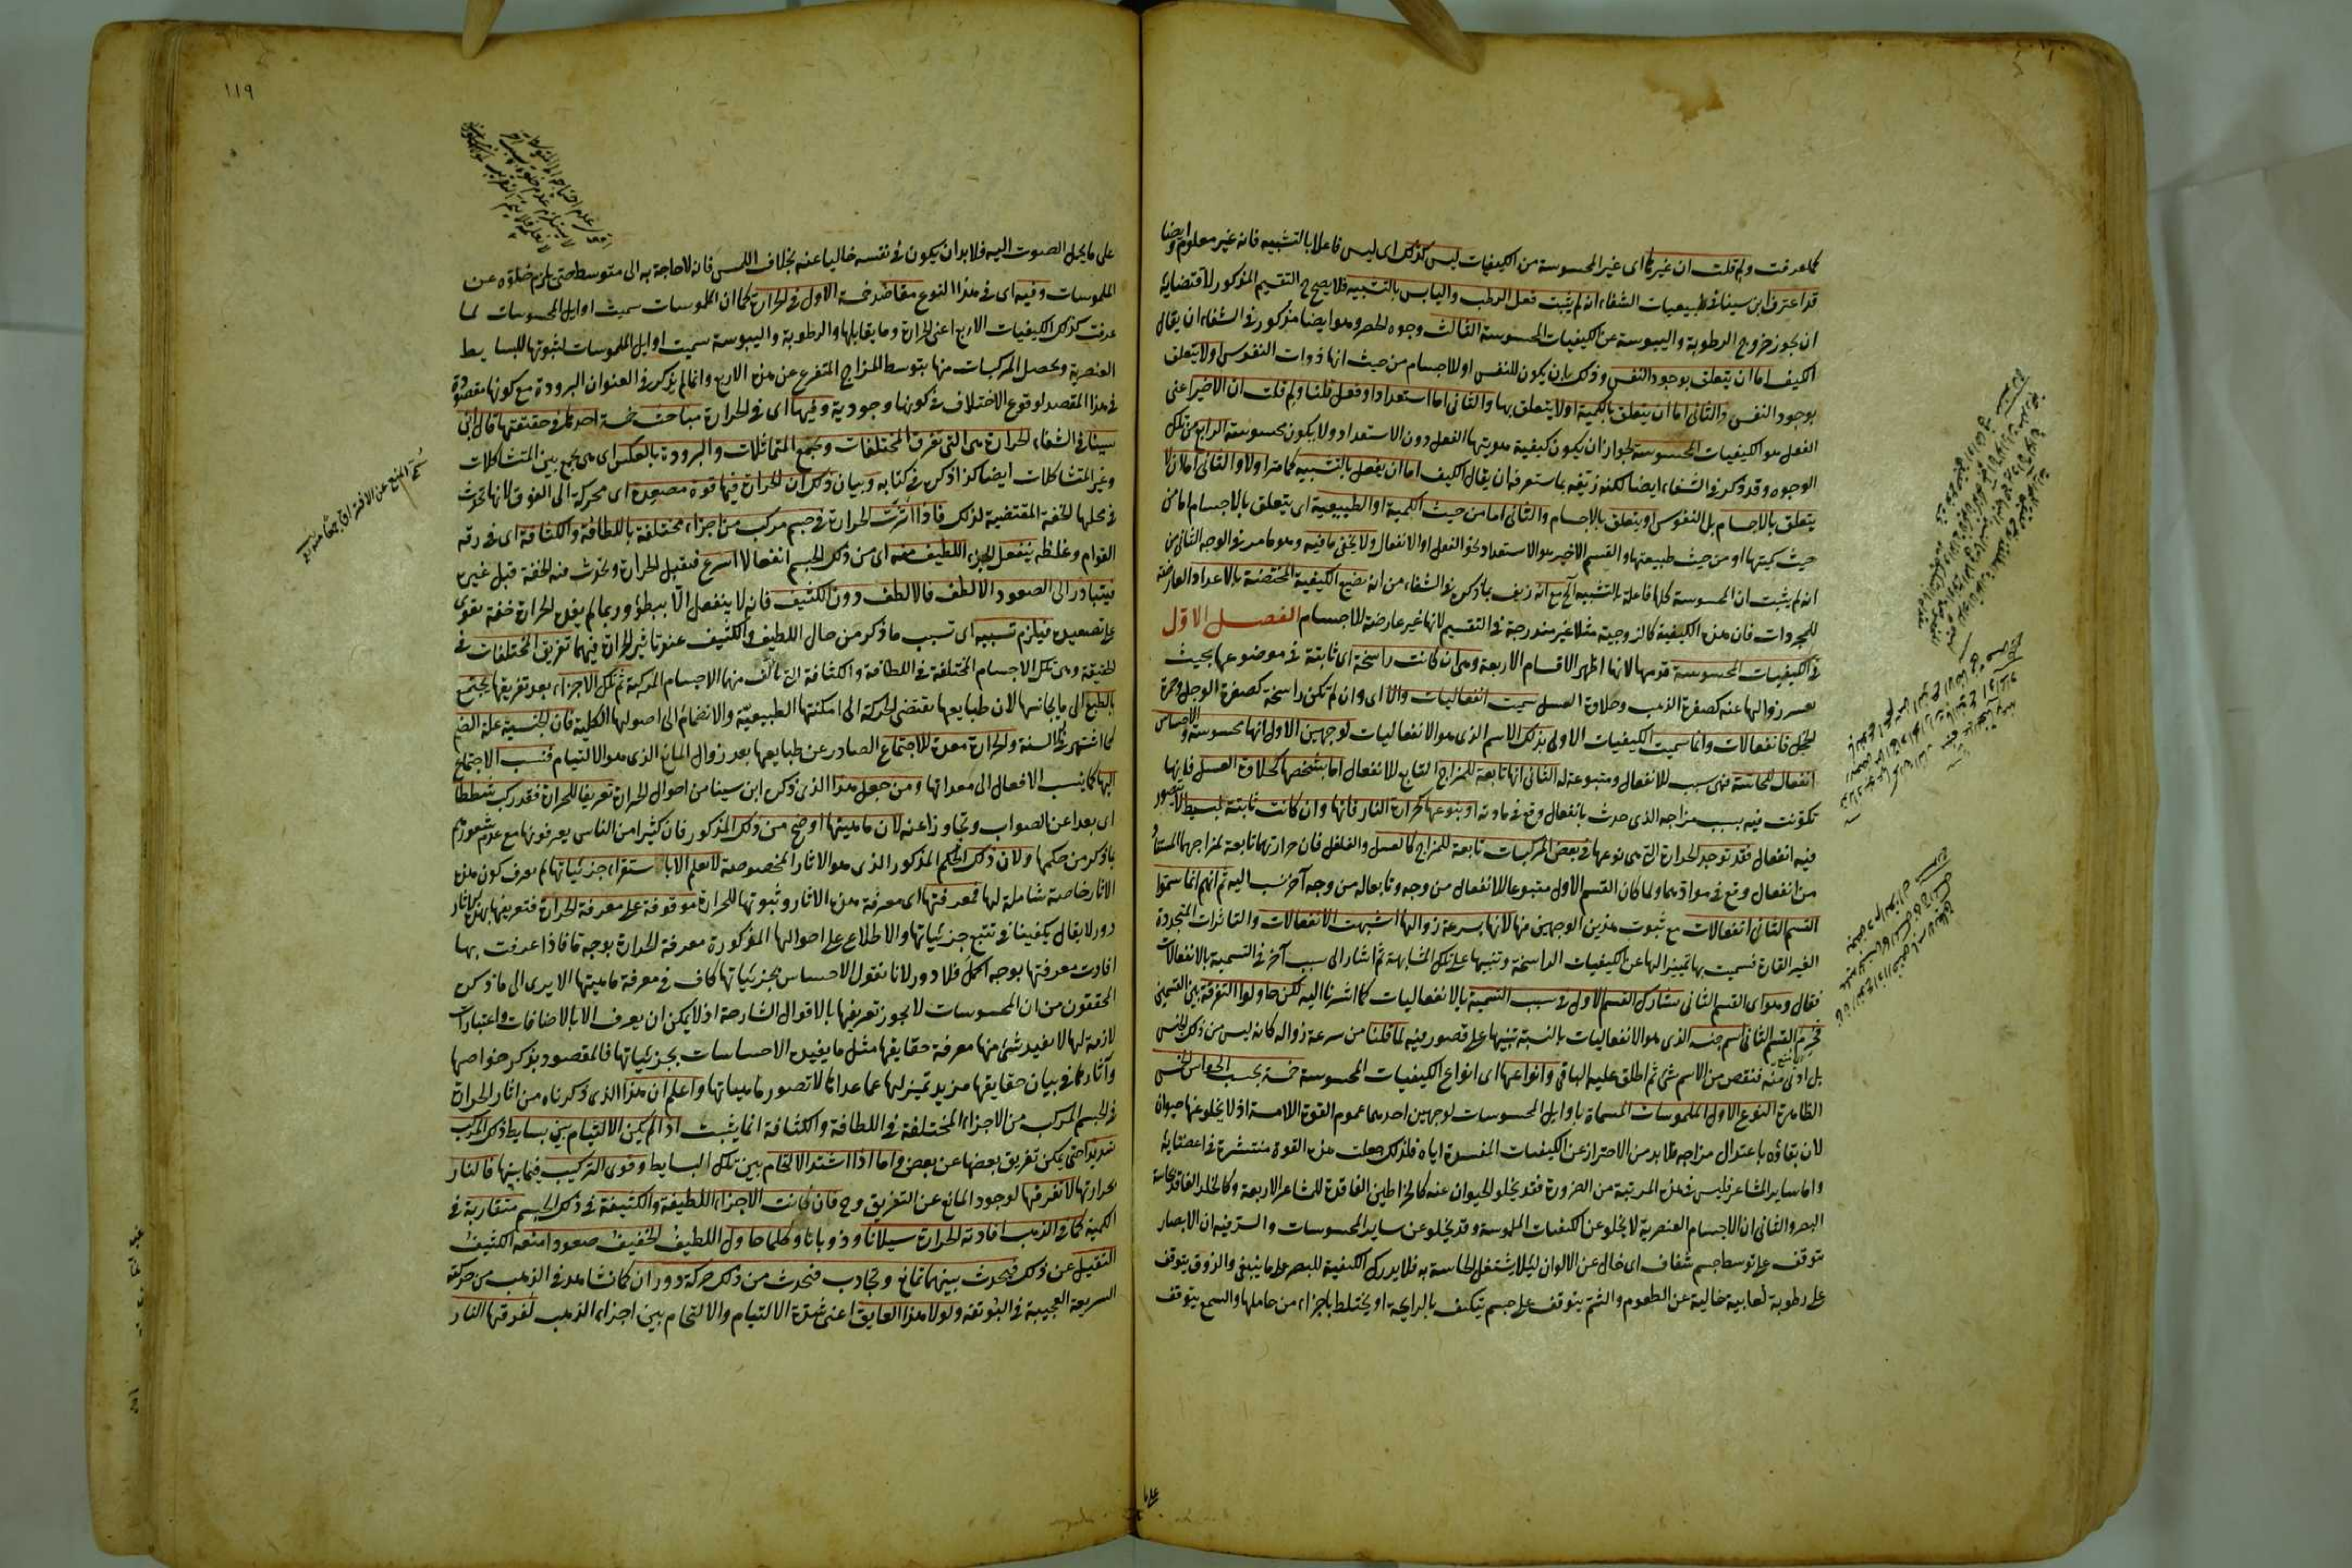 كما عرفت ولم قلت ان غيرها اى غير المحسوسة من الكيفيات ليس كذلك اى ليس فاعلا بالتشبيه فانه غير معلوم وايضا
قد اعترف ابن سينا فى طبيعيات الشفاء انه لم يثبت فعل الرطب واليابس بالتشبيه فلا يصح ح التقسيم المذكور لاقتضايه
ان يجوز خروج الرطوبة واليبوسة عن الكيفيات المحسوسة الثالث وجوه لحصر وهو ايضا مذكور فى الشفاء ان يقال
الكيف اما ان يتعلق بوجود النفس وذلك بان يكون للنفس او للاجسام من حيث انها ذوات النفوس اولا يتعلق
بوجود النفس والثانى اما ان يتعلق بالكمية اولا يتعلق بها والثانى اما استعداد او فعل قلنا ولم قلت ان الاخير اعنى
الفعل هو الكيفيات المحسوسة لجواز ان يكون كيفية هويتها الفعل دون الاستعداد ولا يكون محسوسة الرابع من تلك
الوجوه وقد ذكر فى الشفاء ايضا لكنه زيفه بما ستعرفه ان يقال الكيف اما ان يفعل بالتشبيه كما مر اولا والثانى اما لان لا
يتعلق بالاجسام بل النفوس او يتعلق بالاجسام والثانى اما من حيث الكمية او الطبيعية اى يتعلق بالاجسام اما من
حيث كميتها او من حيث طبيعتها والقسم الاخير هو الاستعداد نحو الفعل او الانفعال ولا يخفى ما فيه وهو ما مر فى الوجه الثانى من
انه لم يثبت ان المحسوسة كلها فاعلة بالتشبيه الخ مع انه زيف بما ذكره فى الشفاء من انه يضيع الكيفية المختصة بالاعداد العارضة
للمجردات فان هذه الكيفية كالزوجية مثلا غير مندرجة فى التقسيم لانها غير عارضة للاجسام الفصل الاول
فى الكيفيات المحسوسة قدمها لانها اظهر الاقسام الاربعة وهى ان كانت راسخة اى ثابتة فى موضوعها بحيث
يعسر زوالها عنه كصفرة الذهب وحلاوة العسل سميت انفعاليات والا اى وان لم تكن راسخة كصفرة الوجل وحمرة
الخجل فانفعالات وانما سميت الكيفيات الاولى بذلك الاسم الذى هو الانفعاليات لوجهين الاول انها محسوسة والاحساس
انفعال الحاسة فهى سبب للانفعال ومتبوعة له الثانى انها تابعة للمزاج التابع للانفعال اما بشخصها كحلاوة العسل فانها
تكونت فيه بسبب مزاجه الذى حدث بانفعال وقع فى مادته او بنوعها كحرارة النار فانها وان كانت ثابتة لبسيط لا يتصور
فيه انفعال فقد توجد الحرارة التى هى نوعها فى بعض المركبات تابعة للمزاج كالعسل والفلفل فان حرارتهما تابعة لمزاجهما المستفاد
من انفعال وقع فى موادهما ولما كان القسم الاول متبوعا للانفعال من وجه وتابعا له من وجه آخر نسب اليه ثم انهم انما سموا
القسم الثانى انفعالات مع ثبوت هذين الوجهين فيها لانها بسرعة زوالها اشبهت الانفعالات والتاثرات المتجددة
الغير القارة فسميت بها تمييزا لها عن الكيفيات الراسخة وتنبيها على تلك المشابهة ثم اشار الى سبب آخر فى التسمية بالانفعالات
فقال وهو اى القسم الثانى يشارك القسم الاول فى سبب التسمية بالانفعاليات كما اشرنا اليه لكن حاولوا التفرقة بين القسمين
فحرم القسم الثانى اسم جنسه الذى هو الانفعاليات بالنسبة تنبيها على قصور فيه لما قلنا من سرعة زواله كانه ليس من ذلك الجنس
بل ادنى منه فنقص من الاسم شئ ثم اطلق عليه الباقى وانواعها اى انواع الكيفيات المحسوسة خمسة بحسب الحواس الخمس
الظاهرة النوع الاول الملموسات المسماة باوايل المحسوسات لوجهين احدهما عموم القوة اللامسة اذ لا يخلو عنها حيوان
لان بقاؤه باعتدال مزاجه فلا بد من الاحتراز عن الكيفيات المفسدة اياه فلذلك جعلت هذه القوة منتشرة فى اعضائه
واما ساير المشاعر فليس فى هذه المرتبة من الضرورة فقد يخلو الحيوان عنه كالخراطين الفاقدة للمشاعر الاربعة وكالخلد الفاقد لحاسة
البصر والثانى ان الاجسام العنصرية لا يخلو عن الكيفيات الملموسة وقد يخلو عن ساير المحسوسات والسر فيه ان الابصار
يتوقف على توسط جسم شفاف اى خال عن الالوان لئلا يشتغل الحاسة به فلا يدرك الكيفية للمبصر على ما ينبغى والذوق يتوقف
على رطوبة لعابية خالية عن الطعوم والشم يتوقف على جسم يتكيف بالرايحة او يختلط باجزاء من حاملها والسمع يتوقف
على ما
١١٩
على ما يحمل الصوت اليه فلا بد ان يكون فى نفسه خاليا عنه بخلاف اللمس فانه لا حاجة به الى متوسط حتى يلزم خلوه عن
الملموسات وفيه اى فى هذا النوع مقاصد خمسة الاول فى الحرارة كما ان الملموسات سميت اوايل المحسوسات لما
عرفت كذلك الكيفيات الاربع اعنى الحرارة وما يقابلها والرطوبة واليبوسة سميت اوايل الملموسات لثبوتها للبسايط
العنصرية وتحصل المركبات منها بتوسط المزاج المتفرع عن هذه الاربع وانما لم يذكر فى العنوان البرودة مع كونها مقصودة
فى هذا المقصد لوقوع الاختلاف فى كونها وجودية وفيها اى فى الحرارة مباحث خمسة احدها فى حقيقتها قال ابن
سينا فى الشفاء الحرارة هى التى تفرق المختلفات وتجمع المتماثلات والبرودة بالعكس اى هى تجمع بين المتشاكلات
وغير المتشاكلات ايضا كذا ذكره فى كتابه وبيان ذلك ان الحرارة فيها قوة مصعدة اى محركة الى الفوق لانها تحدث
فى محلها الخفة المقتضية لذلك فاذا اثرت الحرارة فى جسم مركب من اجزاء مختلفة باللطافة والكثافة اى فى رقة
القوام وغلظه ينفعل الجزء اللطيف منه اى من ذلك الجسم انفعالا اسرع فيقبل الحرارة ويحدث فيه الخفة قبل غيره
فيتبادر الى الصعود الالطف فالالطف دون الكثيف فانه لا ينفعل الا ببطؤ وربما لم يفد الحرارة خفة يقوى
على تصعيده فيلزم تسببه اى تسبب ما ذكر من حال اللطيف والكثيف عند تاثير الحرارة فيهما تفريق المختلفات فى
الحقيقة وهى تلك الاجسام المختلفة فى اللطافة والكثافة التى تالف منها الاجسام المركبة ثم تلك الاجزاء بعد تفريقها يجتمع
بالطبع الى ما يجانسها لان طبايعها تقتضى الحركة الى امكنتها الطبيعية والانضمام الى اصولها الكلية فان الجنسية علة الضم
كما اشتهر فى الالسنة والحرارة معدة للاجتماع الصادر عن طبايعها بعد زوال المانع الذى هو الالتيام فنسب الاجتماع
اليها كما ينسب الافعال الى معداتها ومن جعل هذا الذى ذكره ابن سينا من احوال الحرارة تعريفا للحرارة فقد ركب شططا
اى بعدا عن الصواب وتجاوزا عنه لان ماهيتها اوضح من ذلك المذكور فان كثيرا من الناس يعرفونها مع عدم شعورهم
بما ذكر من حكمها ولان ذلك الحكم المذكور الذى هو الاثار المخصوصة لا تعلم الا باستقراء جزئياتها لم يعرف كون هذه
الاثار خاصة شاملة لها فمعرفتها اى معرفة هذه الاثار وثبوتها للحرارة موقوفة على معرفة الحرارة فتعريفها بهذه الآثار
دور لا يقال يكفينا فى تتبع جزئياتها والاطلاع على احوالها المذكورة معرفة الحرارة بوجه ما فاذا عرفت بها
افادت معرفتها بوجه اكمل فلا دور لانا نقول الاحساس بجزئياتها كاف فى معرفة ماهيتها الا يرى الى ما ذكره
المحققون من ان المحسوسات لا يجوز تعريفها بالاقوال الشارحة اذ لا يمكن ان يعرف الا بالاضافات واعتبارات
لازمة لها لا يفيد شئ منها معرفة حقايقها مثل ما يفيده الاحساسات بجزئياتها فالمقصود بذكر خواصها
وآثارها فى بيان حقايقها مزيد تمييز لها عما عداها لا تصور ماهياتها واعلم ان هذا الذى ذكرناه من اثار الحرارة
فى الجسم المركب من الاجزاء المختلفة فى اللطافة والكثافة انما يثبت اذا لم يكن الالتيام بين بسايط ذلك المركب
شديدا حتى يمكن تفريق بعضها عن بعض واما اذا اشتد الالتحام بين تلك البسايط وقوى التركيب فيما بينها فالنار
بحرارتها لا تفرقها لوجود المانع عن التفريق وح فان كانت الاجزاء اللطيفة والكثيفة فى ذلك الجسم متقاربة فى
الكمية كما فى الذهب افادته الحرارة سيلانا وذوبانا وكلما حاول اللطيف الخفيف صعودا منعه الكثيف
الثقيل عن ذلك فيحدث بينهما تمانع وتجاذب فيحدث من ذلك حركة دوران كما نشاهد فى الذهب من حركته
السريعة العجيبة فى البوتقة ولولا هذا العايق اعنى شدة الالتيام والالتحام بين اجزاء الذهب لفرقها النار